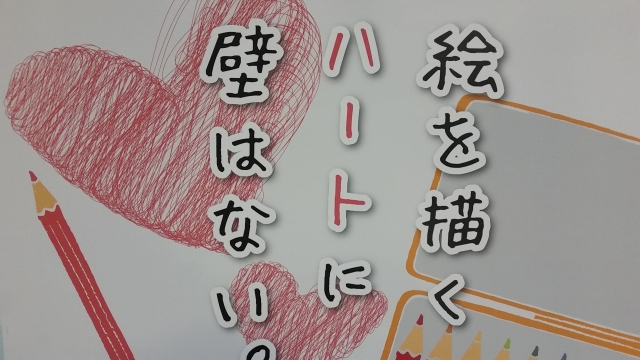 絵を描く
ハートに
壁はない。